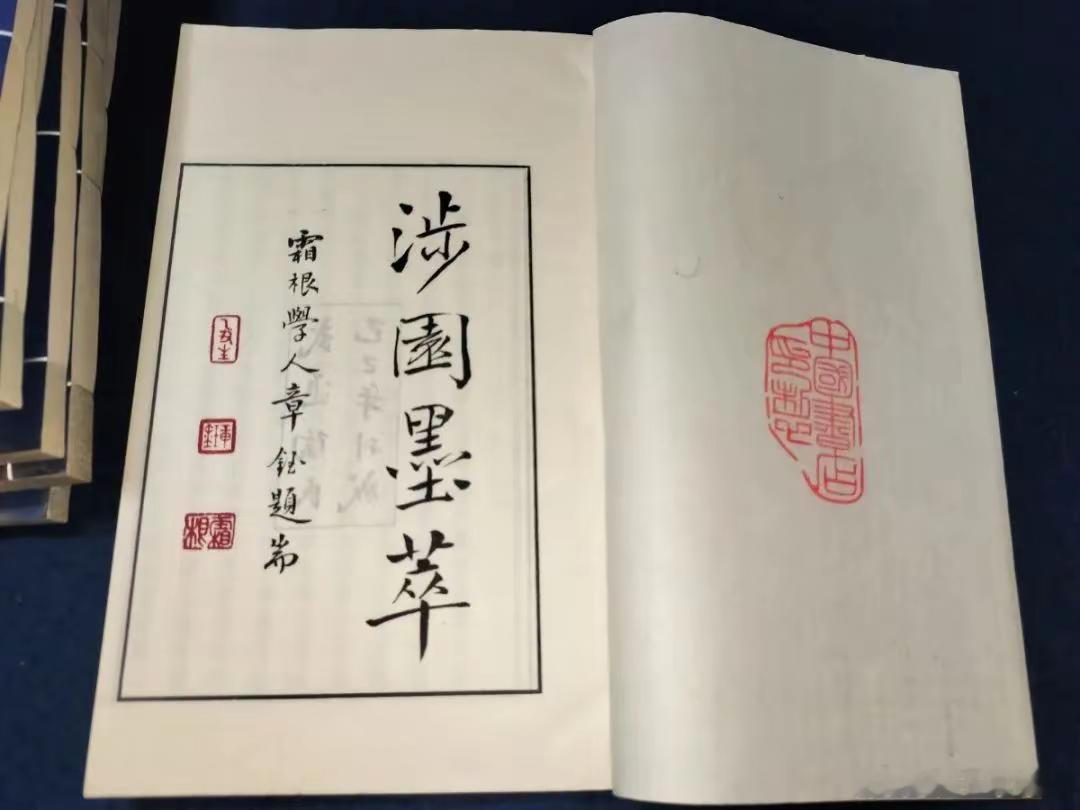 中國書店
涉園墨萃
霜根學人章鈺題耑
霜根